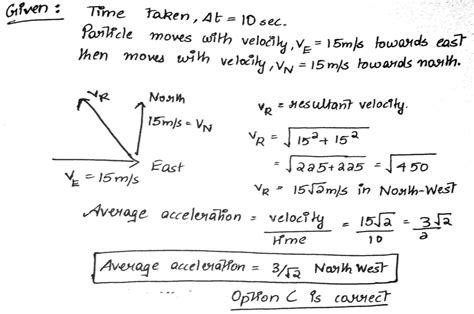 Given : Time Taken, Δt = 10 sec.
Particle moves with velocity, V_E = 15m/s towards east
then moves with velocity, V_N = 15m/s towards north.
V_R
North
15m/s = V_N
East
V_E = 15m/s
V_R = resultant velocity.
V_R = √(15² + 15²)
= √(225+225) = √450
V_R = 15√2 m/s in North-West
Average acceleration = velocity/time = 15√2/10 = 3√2/2
Average acceleration = 3/√2 North West
Option C is correct